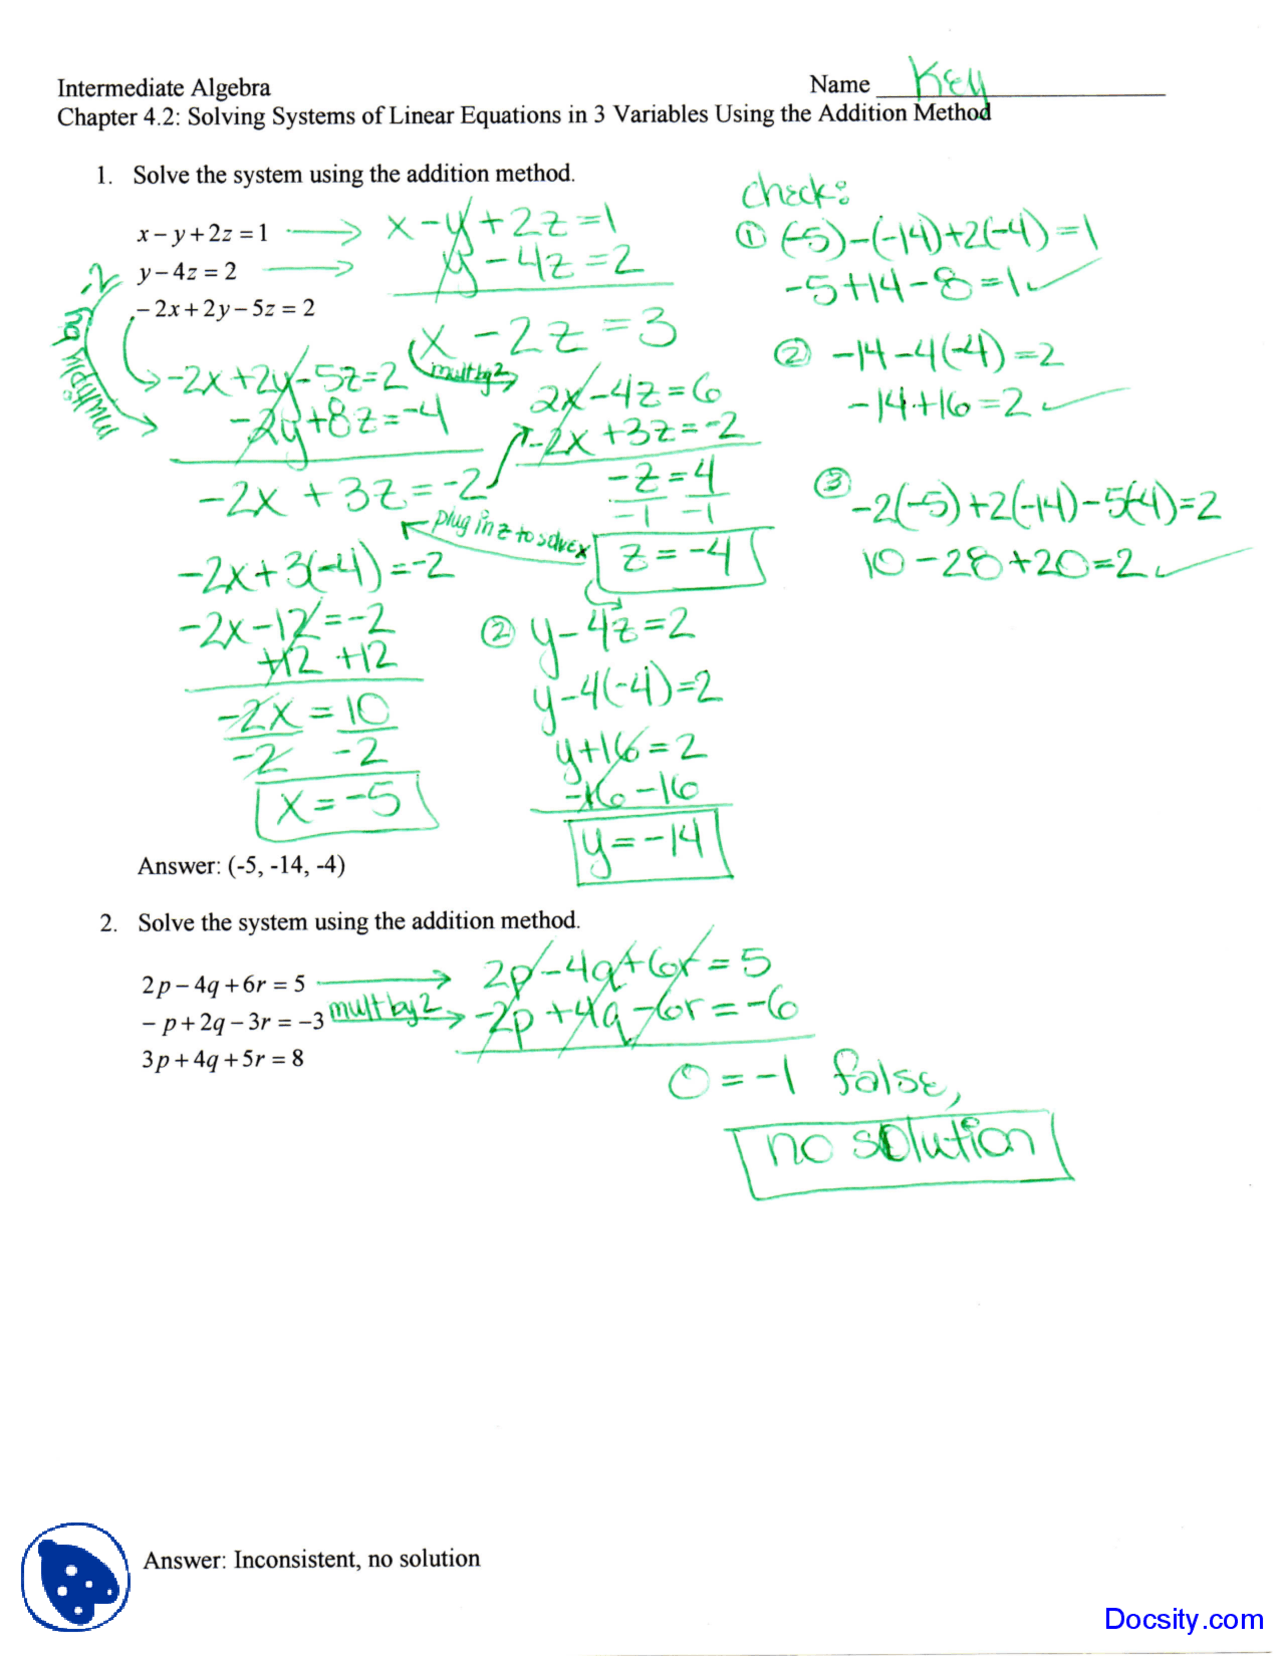 Intermediate Algebra
Name Key
Chapter 4.2: Solving Systems of Linear Equations in 3 Variables Using the Addition Method
1. Solve the system using the addition method.
x − y + 2z = 1
y − 4z = 2
− 2x + 2y − 5z = 2
multiply by -2
x − y + 2z = 1
y − 4z = 2
x − 2z = 3
mult by 2
-2x + 2y − 5z = 2
-2y + 8z = -4
-2x + 3z = -2
2x − 4z = 6
-2x + 3z = -2
-z = 4
-1 -1
z = -4
plug in z to solve x
-2x + 3(-4) = -2
-2x − 12 = -2
+12 +12
-2x = 10
-2 -2
x = -5
② y − 4z = 2
y − 4(-4) = 2
y + 16 = 2
-16 -16
y = -14
check:
① (-5) − (-14) + 2(-4) = 1
-5 + 14 − 8 = 1 ✓
② -14 − 4(-4) = 2
-14 + 16 = 2 ✓
③ -2(-5) + 2(-14) − 5(-4) = 2
10 − 28 + 20 = 2 ✓
Answer: (-5, -14, -4)
2. Solve the system using the addition method.
2p − 4q + 6r = 5
− p + 2q − 3r = −3
3p + 4q + 5r = 8
mult by 2
2p − 4q + 6r = 5
-2p + 4q − 6r = -6
0 = -1 false,
no solution
Answer: Inconsistent, no solution
Docsity.com